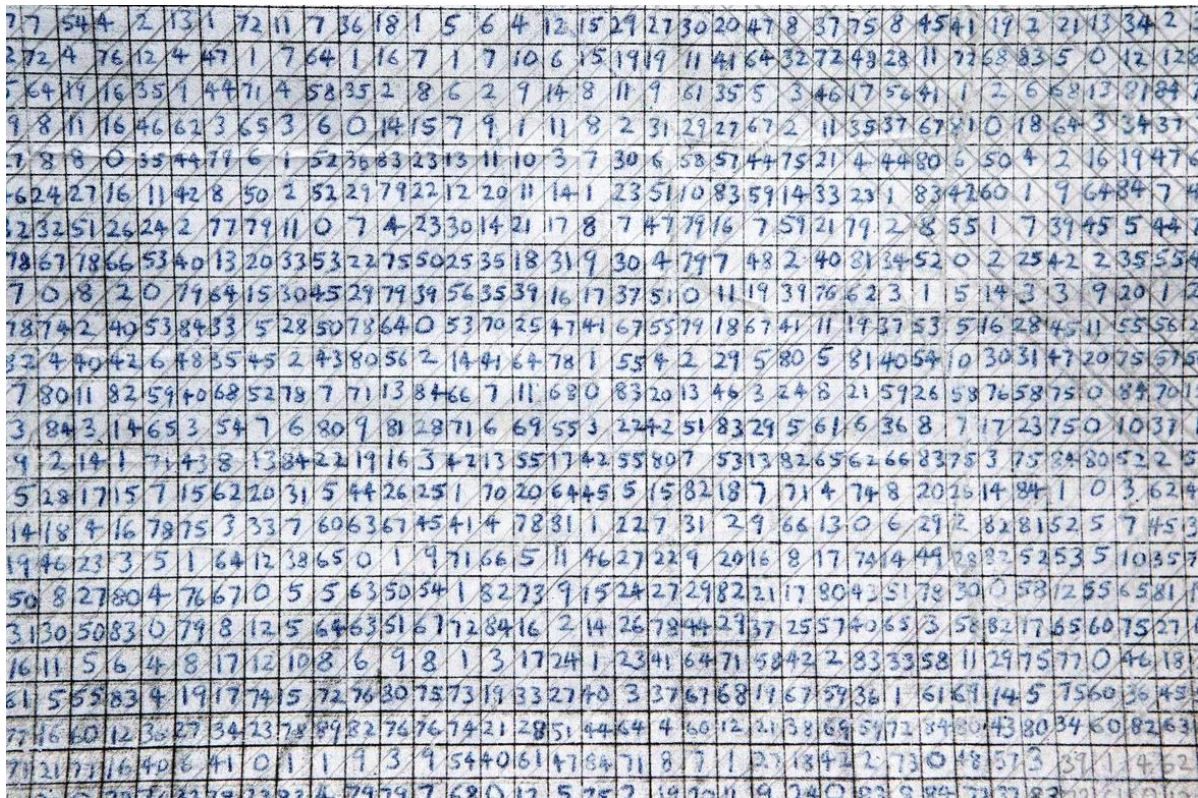 7 54 4 2 13 1 72 11 7 36 18 1 5 6 4 12 15 29 27 30 20 47 8 37 75 8 45 41 19 2 21 13 34 2
72 4 76 12 4 47 1 7 64 1 16 7 1 7 10 6 15 19 19 11 41 64 32 72 48 28 11 72 68 83 5 0 12 12
64 19 16 35 9 44 71 4 58 35 2 8 6 2 9 14 8 11 9 61 35 5 3 46 17 56 41 1 2 6 68 13 81 84
9 8 11 16 46 62 3 65 3 6 0 14 15 7 9 1 11 8 2 31 29 27 67 2 11 35 37 67 81 0 18 64 3 34 37
8 8 0 35 44 79 6 1 52 36 83 23 13 11 10 3 7 30 6 58 57 44 75 21 4 44 80 6 50 4 2 16 19 47
6 24 27 16 11 42 8 50 2 52 29 79 22 12 20 11 14 1 23 51 10 83 59 14 33 23 1 83 42 60 1 9 64 84 7
32 32 51 26 24 2 77 79 11 0 7 4 23 30 14 21 17 8 7 47 79 16 7 59 21 79 2 8 55 1 7 39 45 5 44
78 67 78 66 53 40 13 20 33 53 22 75 50 25 35 18 31 9 30 4 79 7 48 2 40 81 34 52 0 2 25 42 2 35 55
7 0 8 20 79 64 15 30 45 29 79 39 56 35 39 16 17 37 51 0 11 19 39 76 62 3 1 5 14 3 3 9 20 1
78 74 2 40 53 84 33 5 28 50 78 64 0 53 70 25 47 41 67 55 79 18 67 41 11 19 37 53 5 16 28 45 11 55 56
32 4 40 42 6 48 35 45 2 43 80 56 2 14 41 64 78 1 55 4 2 29 5 80 5 81 40 54 10 30 31 47 20 75 57
7 80 11 82 59 40 68 52 78 7 71 13 84 66 7 11 68 0 83 20 13 46 3 24 8 21 59 26 58 76 58 75 0 84 70
3 84 3 14 65 3 54 7 6 80 9 81 28 71 6 69 55 3 22 42 51 83 29 5 61 6 36 8 7 17 23 75 0 10 37
9 2 14 1 71 43 8 13 84 22 19 16 3 42 13 55 17 42 55 80 7 53 13 82 65 62 66 83 75 3 75 84 80 52 2
5 28 17 15 7 15 62 20 31 5 44 26 25 1 70 20 64 45 5 15 82 18 7 71 4 74 8 20 26 14 84 1 0 3 62
14 18 4 16 78 75 3 33 7 60 63 67 45 41 4 78 31 1 22 7 31 2 9 66 13 0 6 29 2 82 81 52 5 7 45
19 46 23 3 5 1 64 12 38 65 0 1 9 71 66 5 11 46 27 22 9 20 16 8 17 74 14 49 28 82 52 53 5 10 35
50 8 27 80 4 76 67 0 5 5 63 50 54 1 82 73 9 15 24 27 29 82 21 17 80 43 51 78 30 0 58 12 55 65 81
31 30 50 83 0 79 8 12 5 64 63 51 67 72 84 16 2 14 26 78 44 29 37 25 57 40 65 3 58 82 17 65 60 75 27
16 11 5 6 4 8 17 12 10 8 6 9 8 1 3 17 24 1 23 41 64 71 58 42 2 83 33 58 11 29 75 77 0 46 18
61 5 55 83 4 19 17 74 15 72 76 30 75 73 19 33 27 40 3 37 67 68 19 67 59 36 1 61 69 14 5 75 60 36 45
77 16 60 12 36 27 34 23 78 89 82 76 76 74 21 28 51 44 64 4 60 12 21 38 69 59 72 84 80 43 80 34 60 82 63
71 21 77 16 40 6 41 0 1 1 9 3 9 54 40 61 47 84 71 8 7 1 27 18 42 2 73 0 48 57 3 39 1 4 62